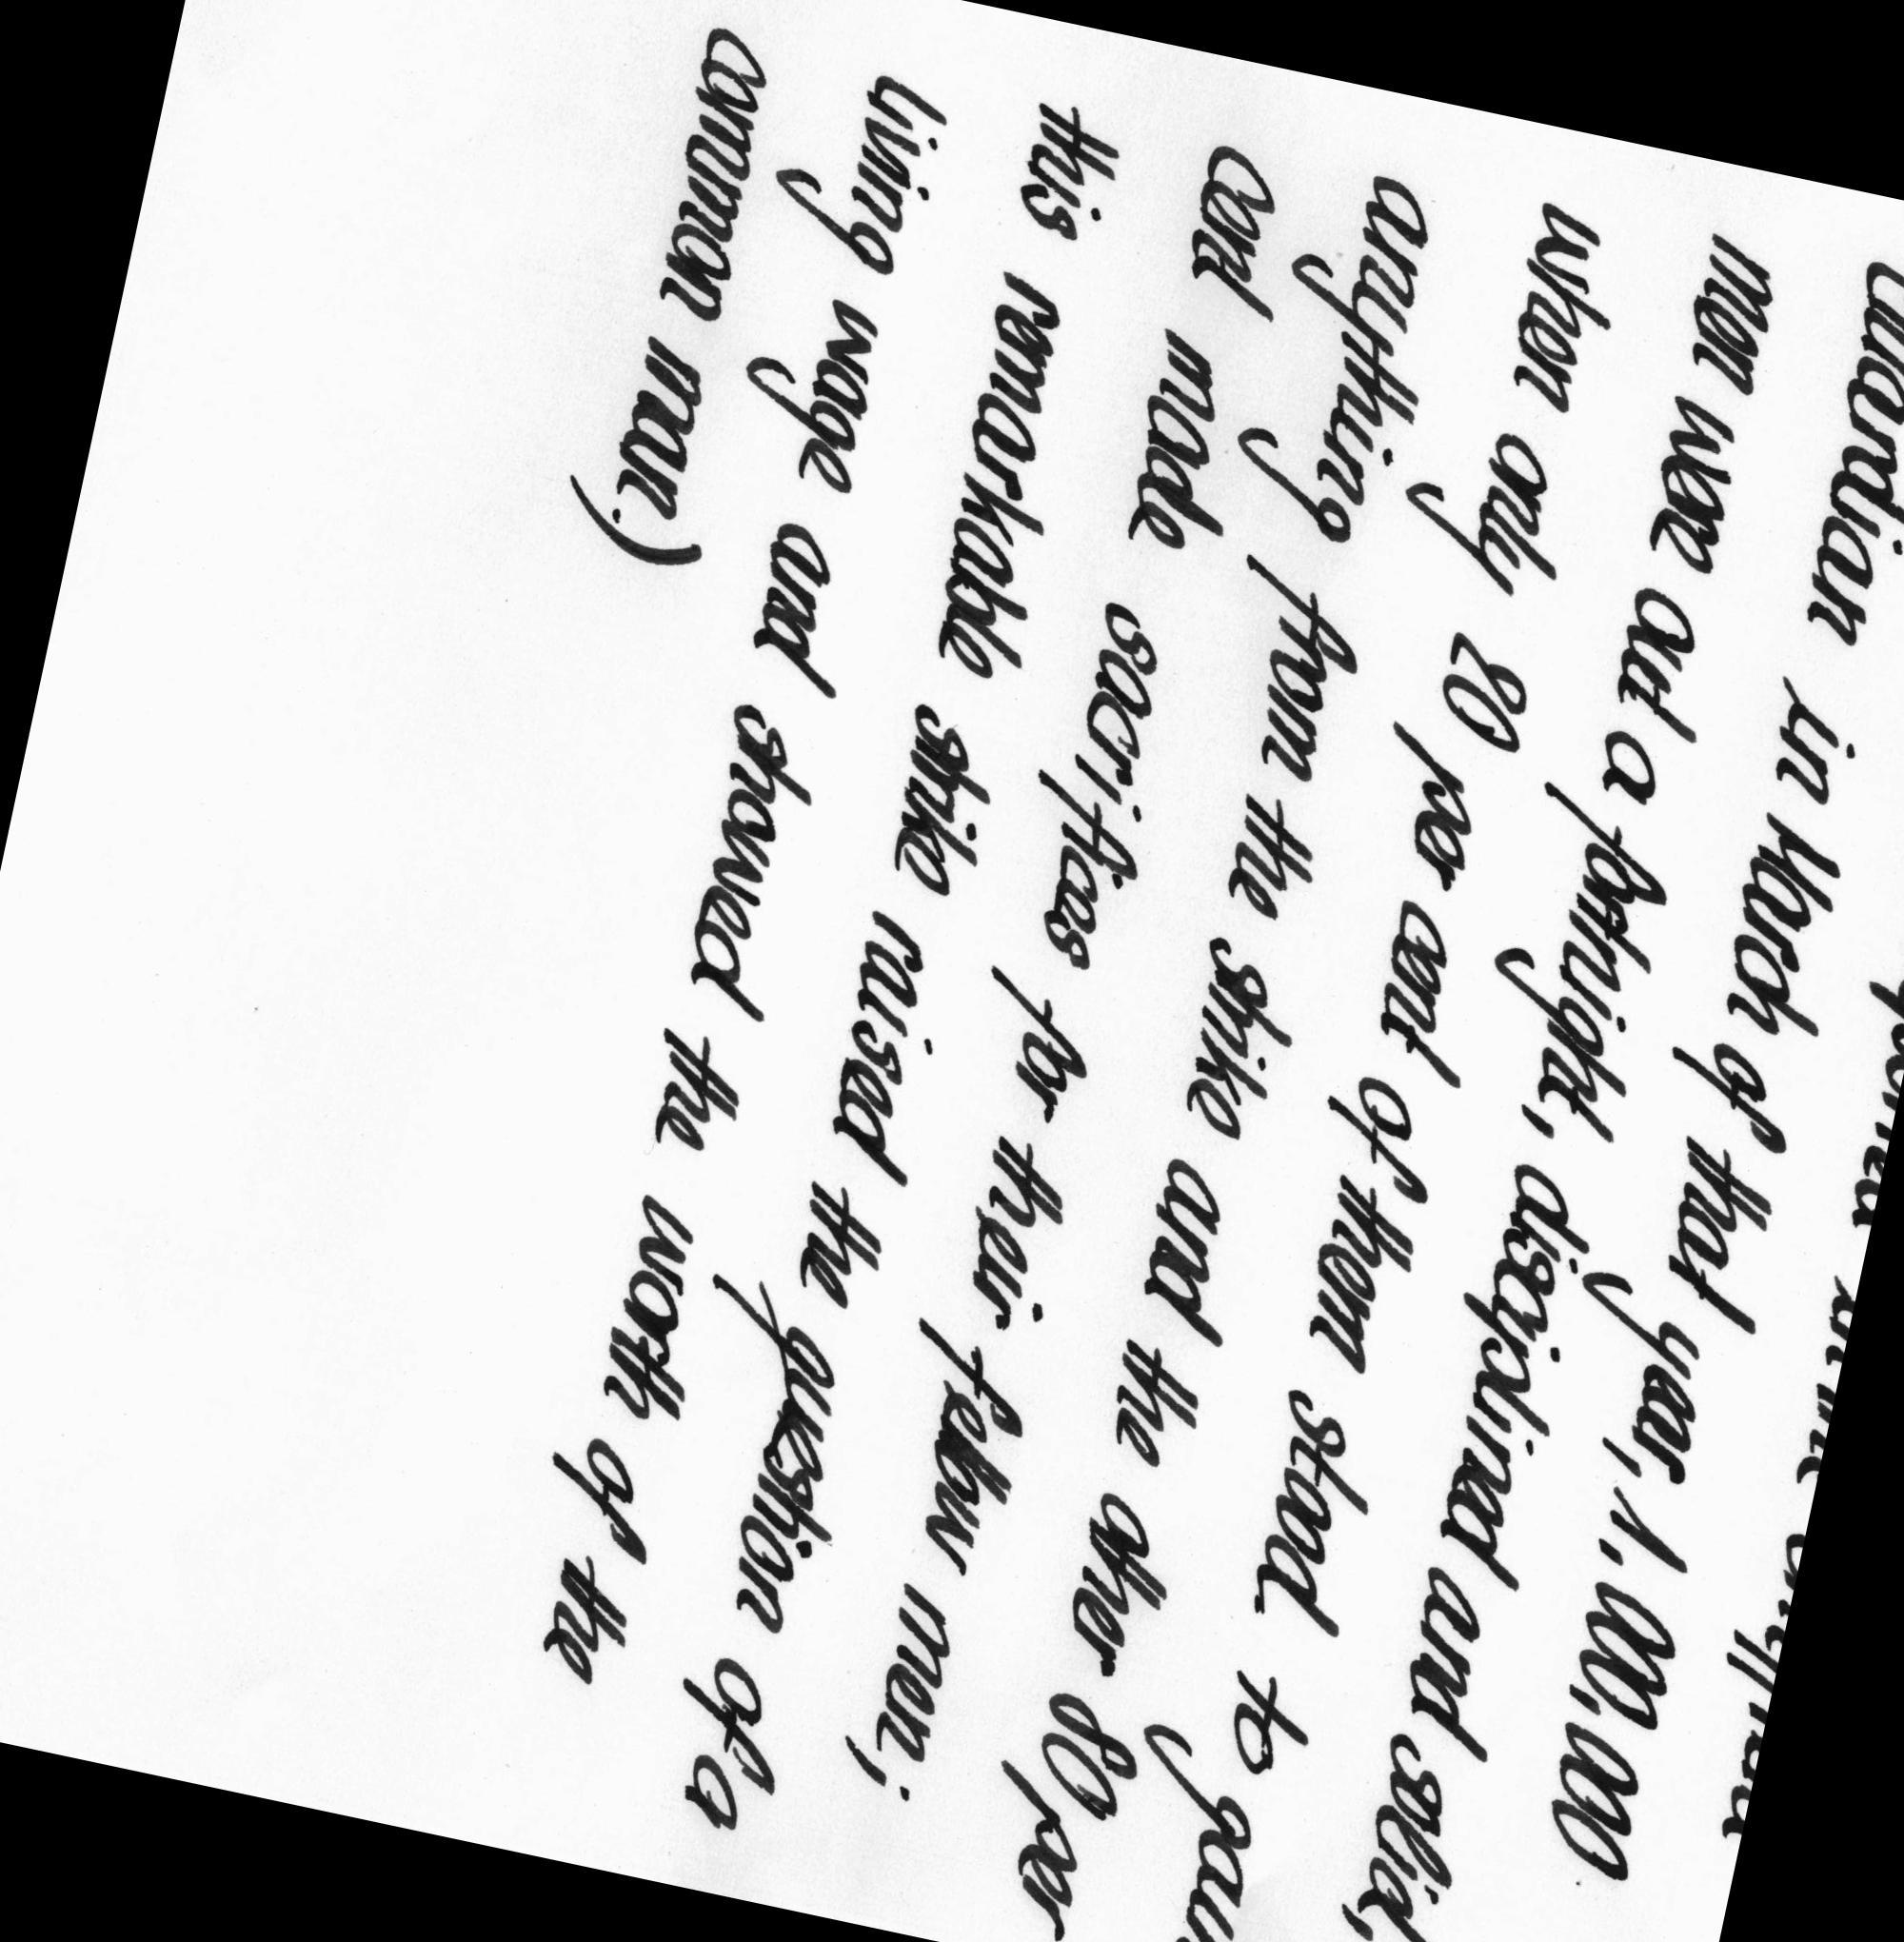 guardian in March of that year, 1,000,000
men were out a fortnight, disciplined and solid,
when only 20 per cent of them stood to gain
anything from the strike and the other 80 per
cent made sacrifices for their fellow men;
this remarkable strike raised the question of a
living wage and showed the worth of the
common man.)